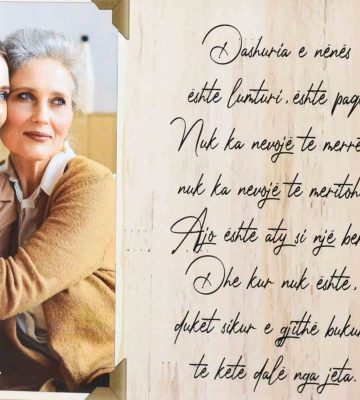 Dashuria e nënës
është lumturi, është paq
Nuk ka nevojë të merrë
nuk ka nevojë të meritoh
Ajo është aty si një be
Dhe kur nuk është,
duket sikur e gjithë buku
të ketë dalë nga jëta.